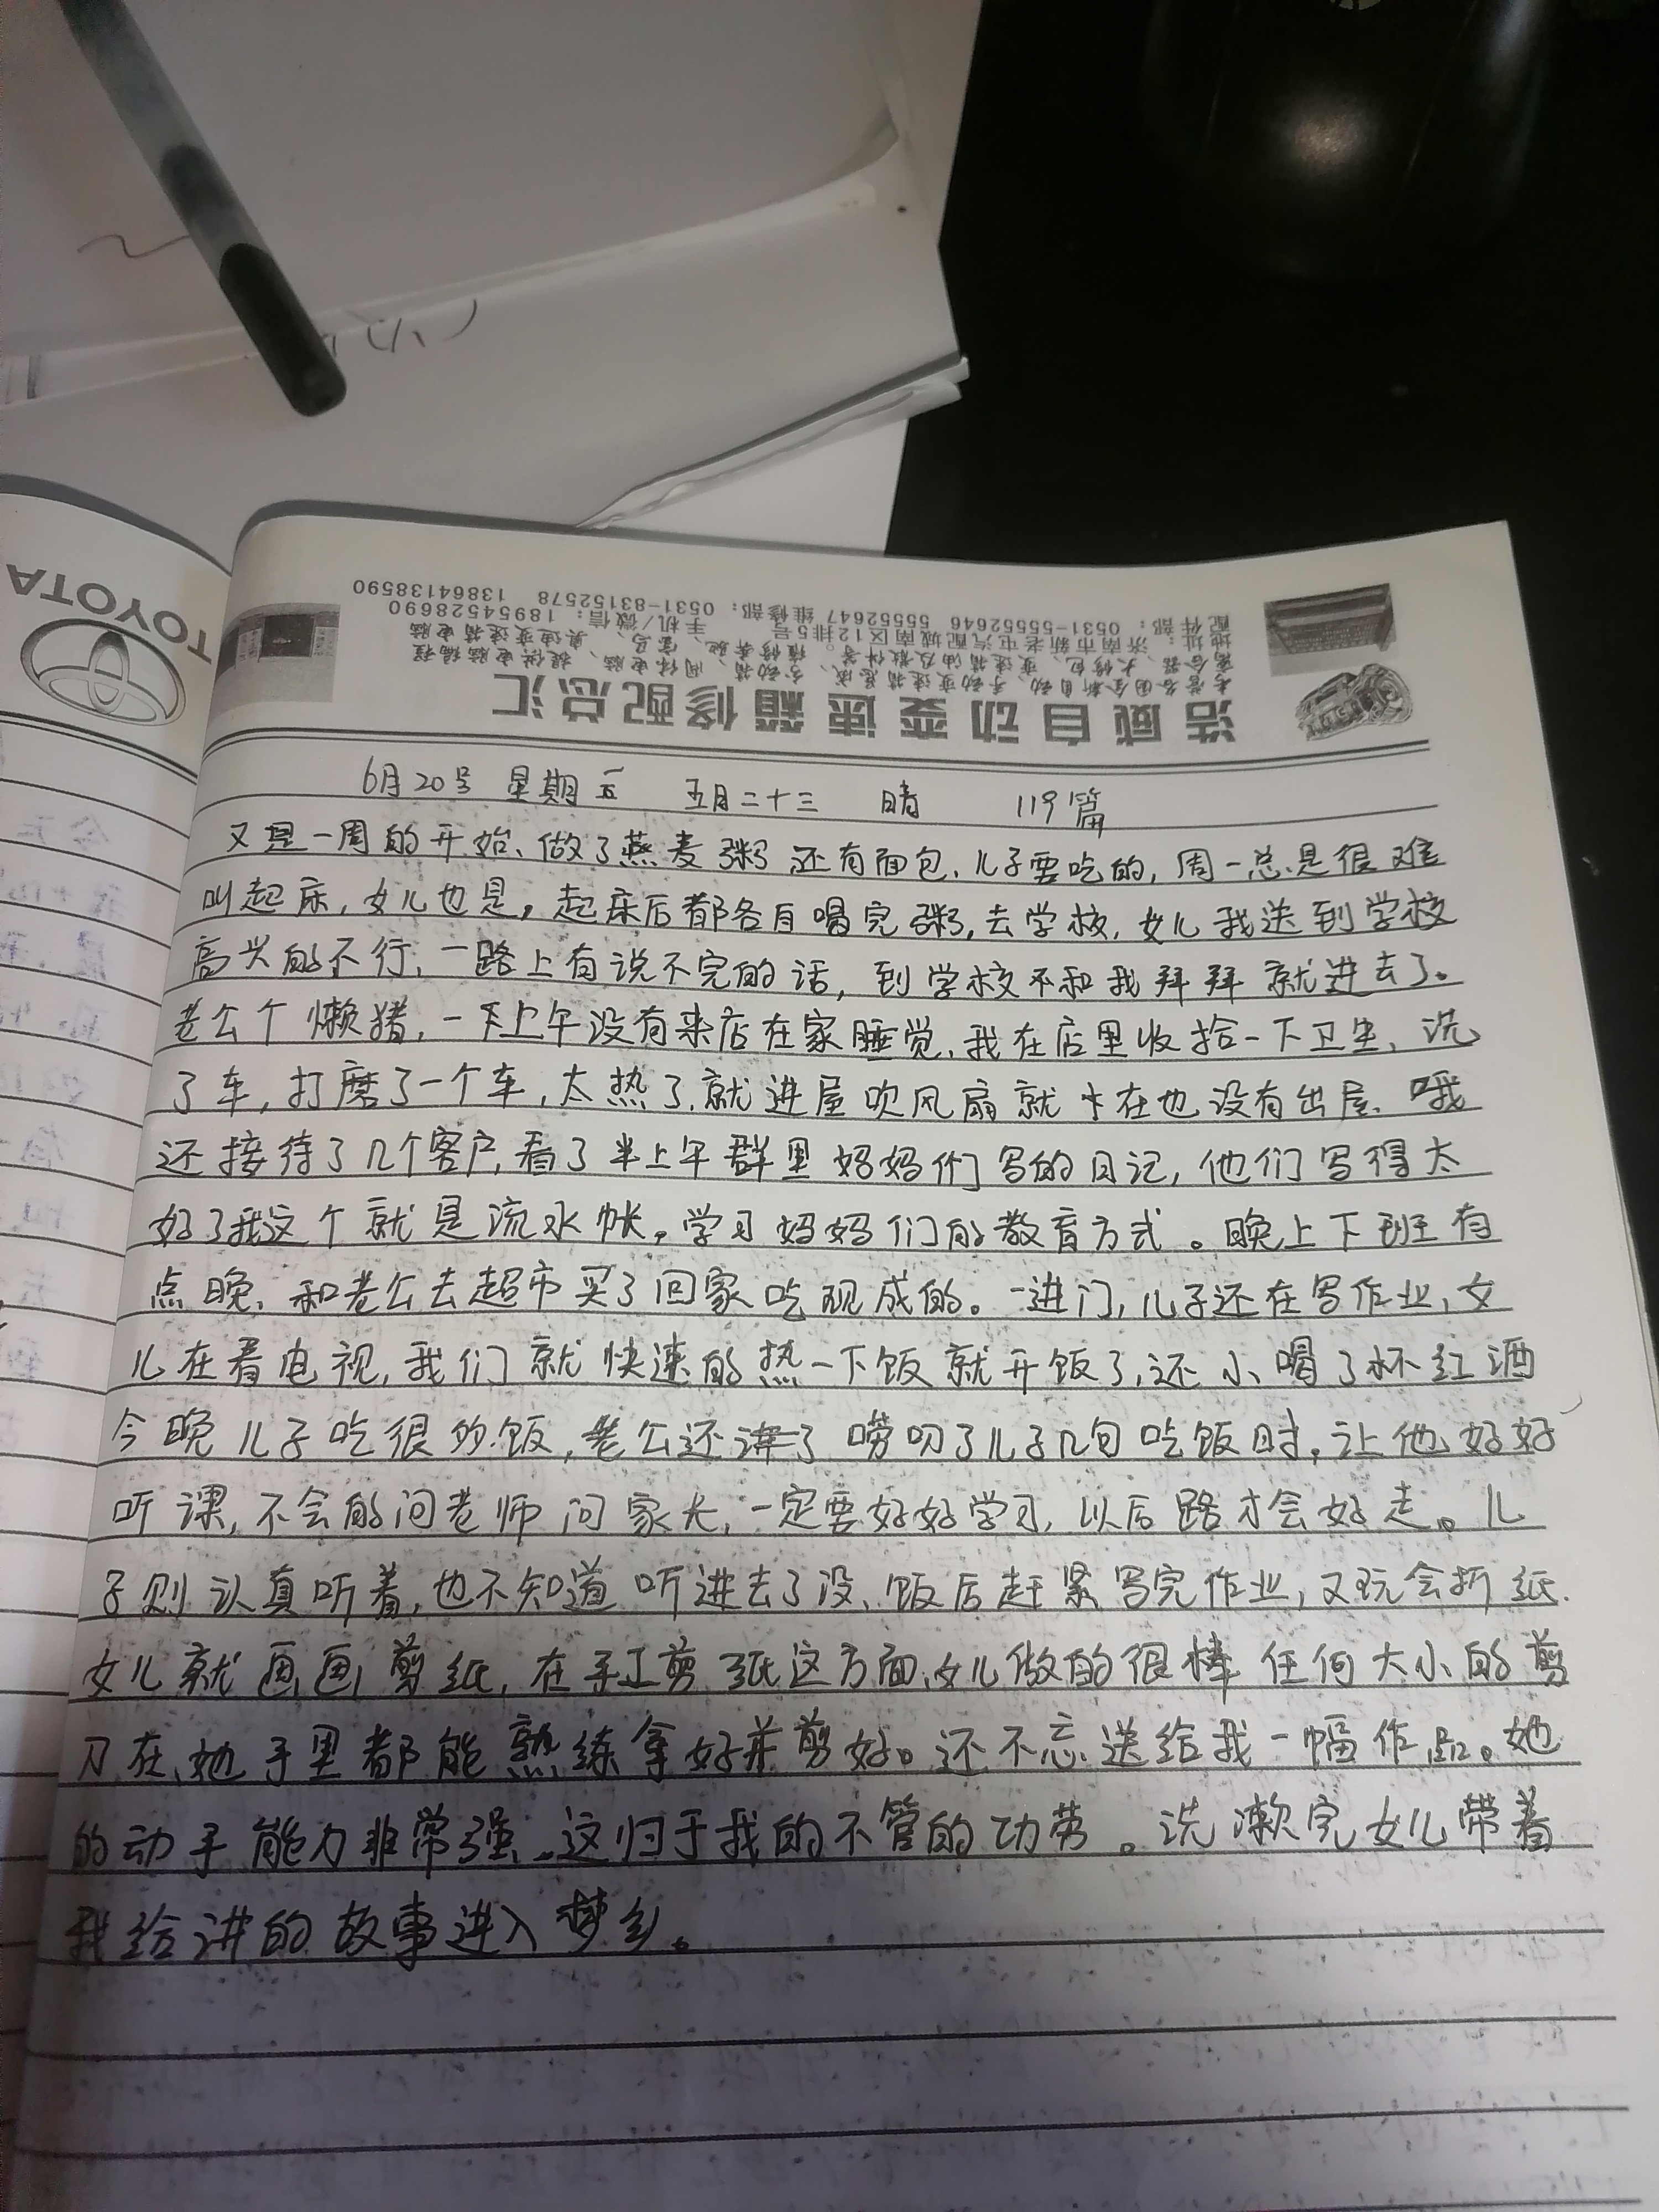 TOYOTA
浩威自动变速箱修配总汇
地址：济南市新老屯汽配城南区12排5号。
配件部：0531-55552646 55552647 维修部：0531-83152578 13864138590
手机/微信：18954528690
6月20号 星期一 五月二十三 晴 119篇
又是一周的开始、做了燕麦粥还有面包、儿子要吃的，周一总是很难
叫起床，女儿也是，起床后都各自喝完粥，去学校，女儿我送到学校
高兴的不行，一路上有说不完的话，到学校不和我拜拜就进去了。
老公个懒猪，一下上午没有来店在家睡觉、我在店里收拾一下卫生、洗
了车，打磨了一个车，太热了，就进屋吹风扇就在也没有出屋、哦
还接待了几个客户，看了半上午群里妈妈们写的日记，他们写得太
好了我这个就是流水帐。学习妈妈们的教育方式。晚上下班有
点晚、和老公去超市买了回家吃现成的。一进门，儿子还在写作业，女
儿在看电视，我们就快速的热一下饭就开饭了，还小喝了杯红酒
今晚儿子吃很多饭，老公还唠叨了儿子几句吃饭时，让他好好
听课，不会的问老师问家长，一定要好好学习，以后路才会好走。儿
子则认真听着，也不知道听进去了没、饭后赶紧写完作业，又玩会折纸.
女儿就画画剪纸，在手工剪纸这方面、女儿做的很棒任何大小的剪
刀在她手里都能熟练拿好并剪好。还不忘送给我一幅作品。她
的动手能力非常强、这归于我的不管的功劳。洗漱完女儿带着
我给讲的故事进入梦乡。